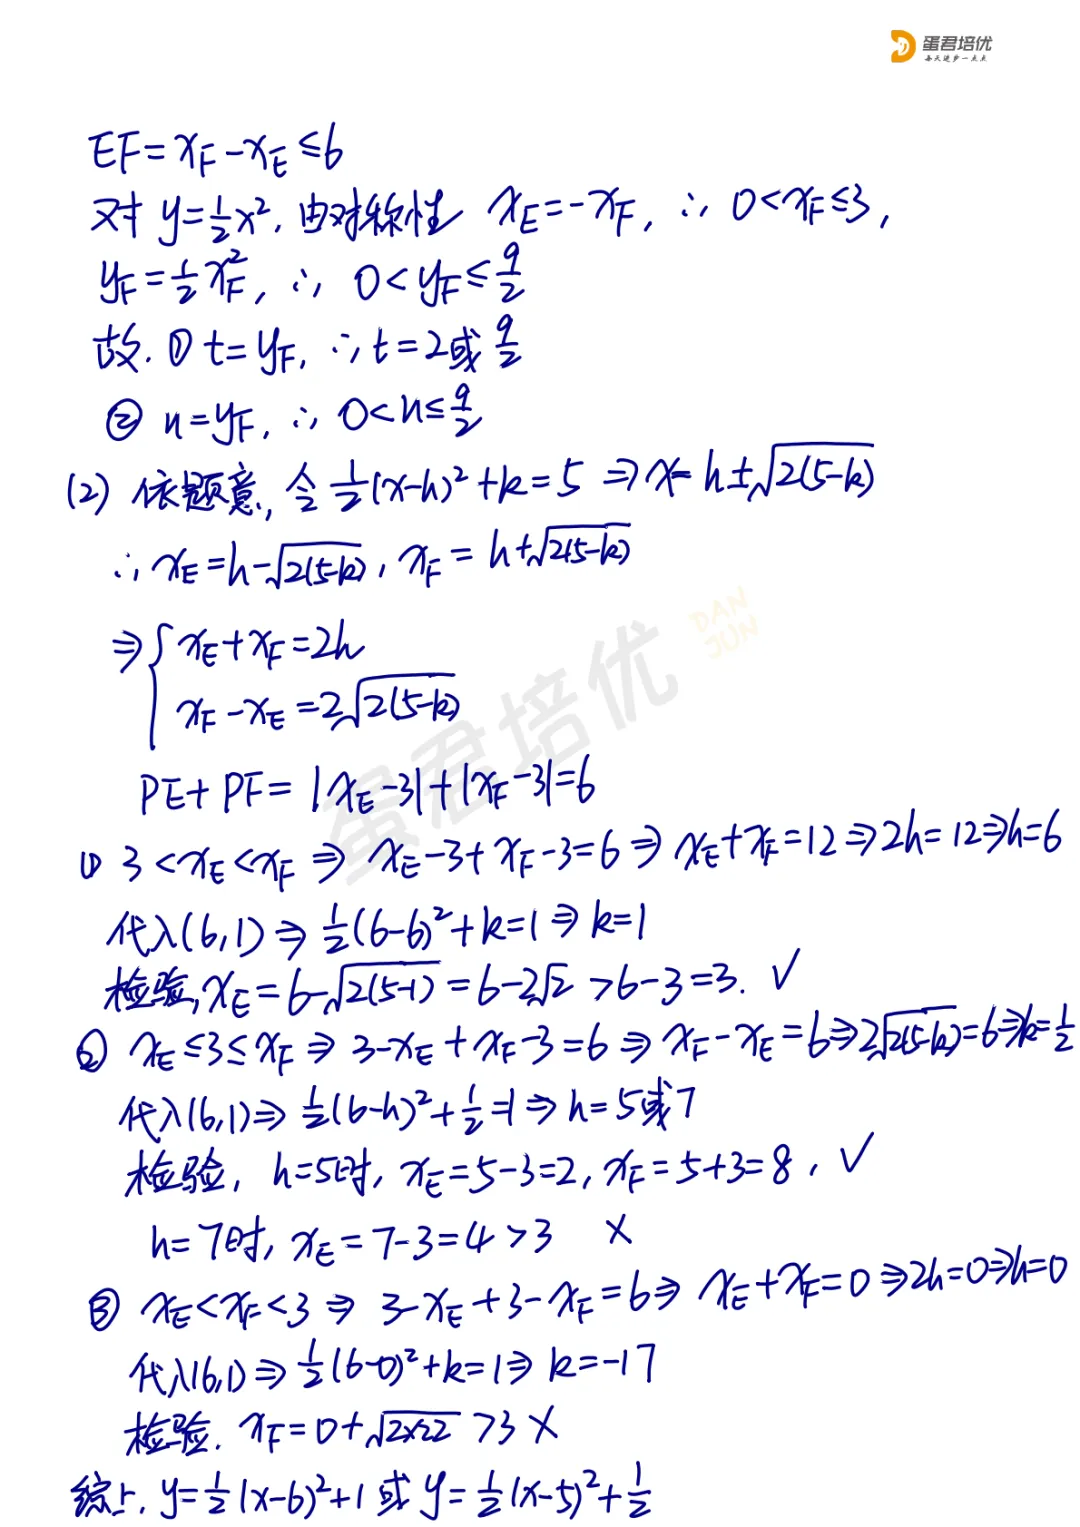 蛋君培优
每天进步一点点
EF=x_F-x_E≤6
又对 y=½x², 由对称性 x_E=-x_F, ∴ 0<x_F≤3,
y_F=½x_F², ∴ 0<y_F≤9/2
故. ① t=y_F, ∴ t=2或9/2
② n=y_F, ∴ 0<n≤9/2
(2) 依题意, 令 ½(x-h)²+k=5 ⇒ x=h±√(2(5-k))
∴ x_E=h-√(2(5-k)), x_F=h+√(2(5-k))
⇒ { x_E+x_F=2h
x_F-x_E=2√(2(5-k))
DAN JUN
蛋君培优
PE+PF=|x_E-3|+|x_F-3|=6
① 3<x_E<x_F ⇒ x_E-3+x_F-3=6 ⇒ x_E+x_F=12 ⇒ 2h=12 ⇒ h=6
代入(6,1) ⇒ ½(6-6)²+k=1 ⇒ k=1
检验, x_E=6-√(2(5-1))=6-2√2>6-3=3. √
② x_E≤3≤x_F ⇒ 3-x_E+x_F-3=6 ⇒ x_F-x_E=6 ⇒ 2√(2(5-k))=6 ⇒ k=½
代入(6,1) ⇒ ½(6-h)²+½=1 ⇒ h=5或7
检验, h=5时, x_E=5-3=2, x_F=5+3=8, √
h=7时, x_E=7-3=4>3 ×
③ x_E<x_F<3 ⇒ 3-x_E+3-x_F=6 ⇒ x_E+x_F=0 ⇒ 2h=0 ⇒ h=0
代入(6,1) ⇒ ½(6-0)²+k=1 ⇒ k=-17
检验. x_F=0+√(2×22)>3 ×
综上, y=½(x-6)²+1 或 y=½(x-5)²+½